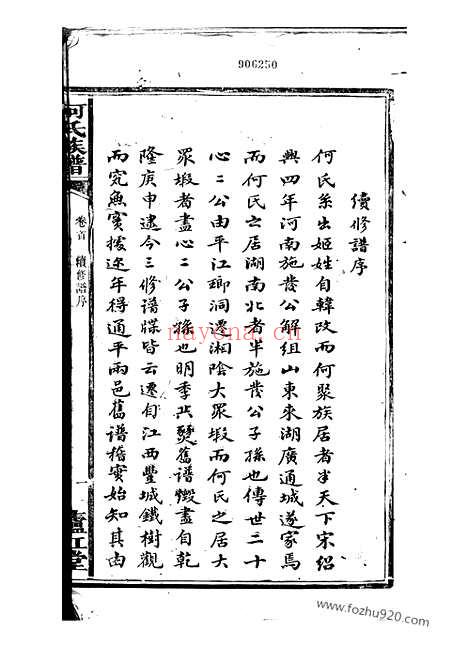 906250
續修譜序
何氏系出姬姓自韓改而何聚族居者半天下宋紹
興四年河南施發公解組山東來湖廣通城遂家焉
而何氏之居湖南北者半施發公子孫也傳世三十
心二公由平江瑯洞遷湘陰大眾塅而何氏之居大
眾塅者盡心二公子孫也明季兵燹舊譜燬盡自乾
隆庚申逮今三修譜牒皆云遷自江西豐城鐵樹觀
而究魚實據迩年得通平兩邑舊譜稽實始知其由
何氏族譜
卷首
續修譜序
一
廬江堂
nayona.cn
www.fozhu920.com